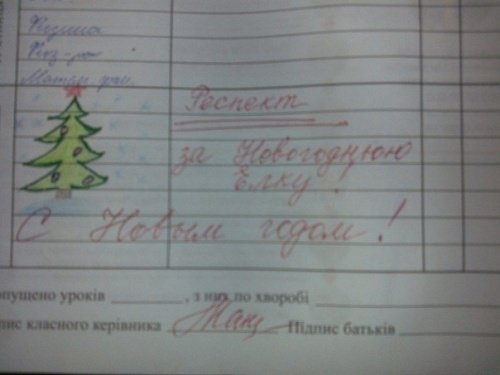 Физика
Физ-ра
Респект
за Новогоднюю
Ёлку
С Новым годом!
опущено уроків , з них по хворобі
пис класного керівника Підпис батьків